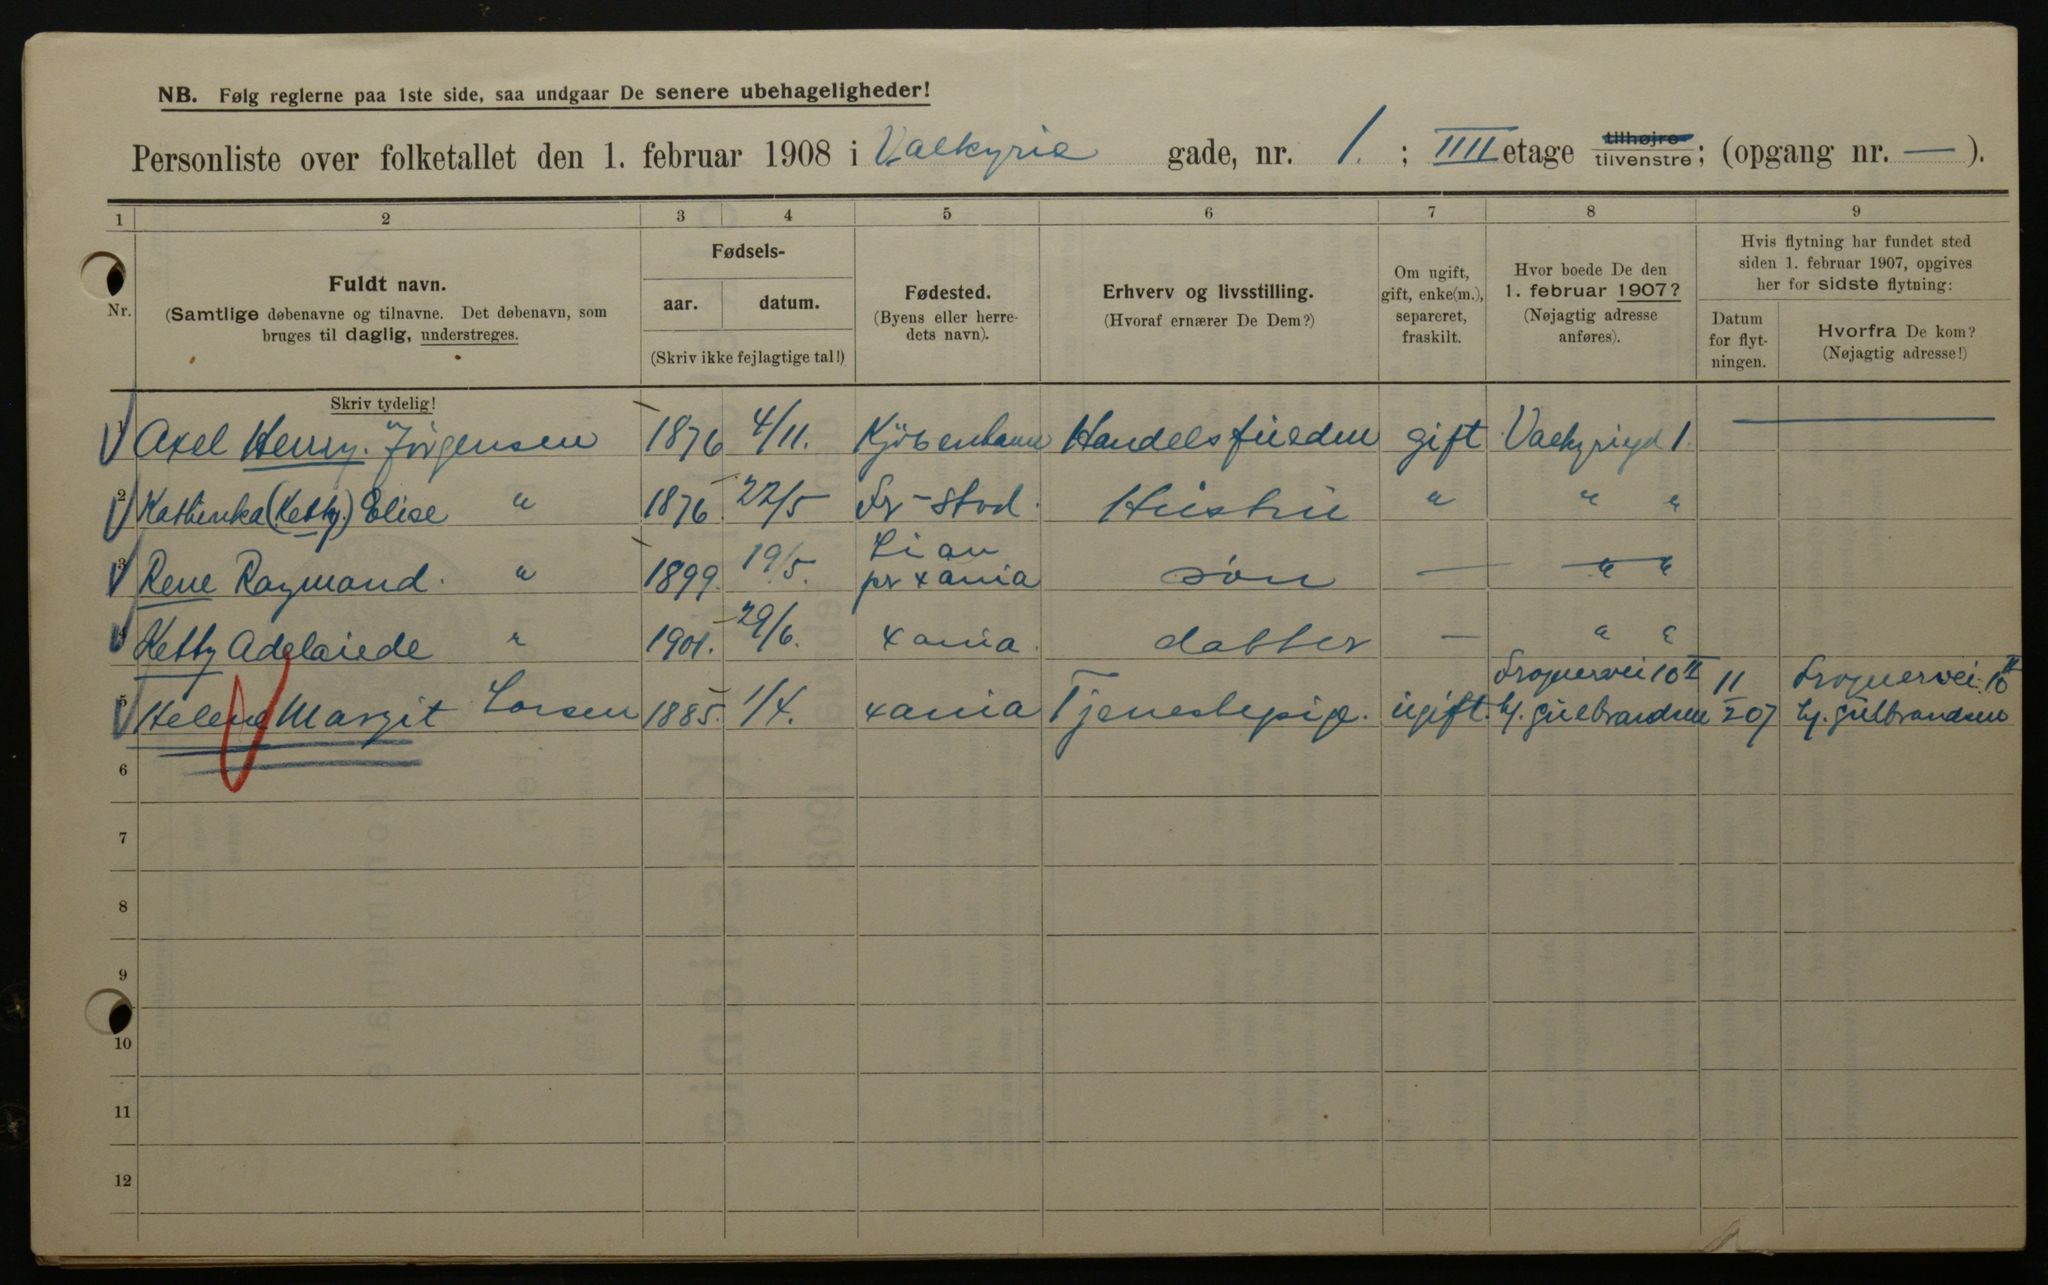 NB. Følg reglerne paa 1ste side, saa undgaar De senere ubehageligheder!
Personliste over folketallet den 1. februar 1908 i Valkyrie gade, nr. 1. ; IIII etage tilhøjre tilvenstre; (opgang nr. — ).
1 2 3 4 5 6 7 8 9
Nr.
Fuldt navn.
(Samtlige døbenavne og tilnavne. Det døbenavn, som
bruges til daglig, understreges.
Skriv tydelig!
Fødsels-
aar. datum.
(Skriv ikke fejlagtige tal!)
Fødested.
(Byens eller herre-
dets navn).
Erhverv og livsstilling.
(Hvoraf ernærer De Dem?)
Om ugift,
gift, enke(m.),
separeret,
fraskilt.
Hvor boede De den
1. februar 1907?
(Nøjagtig adresse
anføres).
Hvis flytning har fundet sted
siden 1. februar 1907, opgives
her for sidste flytning:
Datum
for flyt-
ningen.
Hvorfra De kom?
(Nøjagtig adresse!)
1 Axel Henry Jörgensen 1876 4/11. Kjöbenhavn gift Valkyriegd 1. —
2 Kathinka (Ketty) Elise " 1876 22/5 Fr-stad. Hüstrü " " "
3 Rene Raymond. " 1899. 19/5. Lian
pr xania søn — " "
4 Ketty Adelaiede " 1901. 29/6. xania. datter — " "
5 Helene Margit Larsen 1885. 1/4. xania Tjenestepige. ügift. Frognervei 10 II
hj. Gülbrandsen 11/2 07 Frognervei. 10 II
hj. Gülbrandsen
6
7
8
9
10
11
12